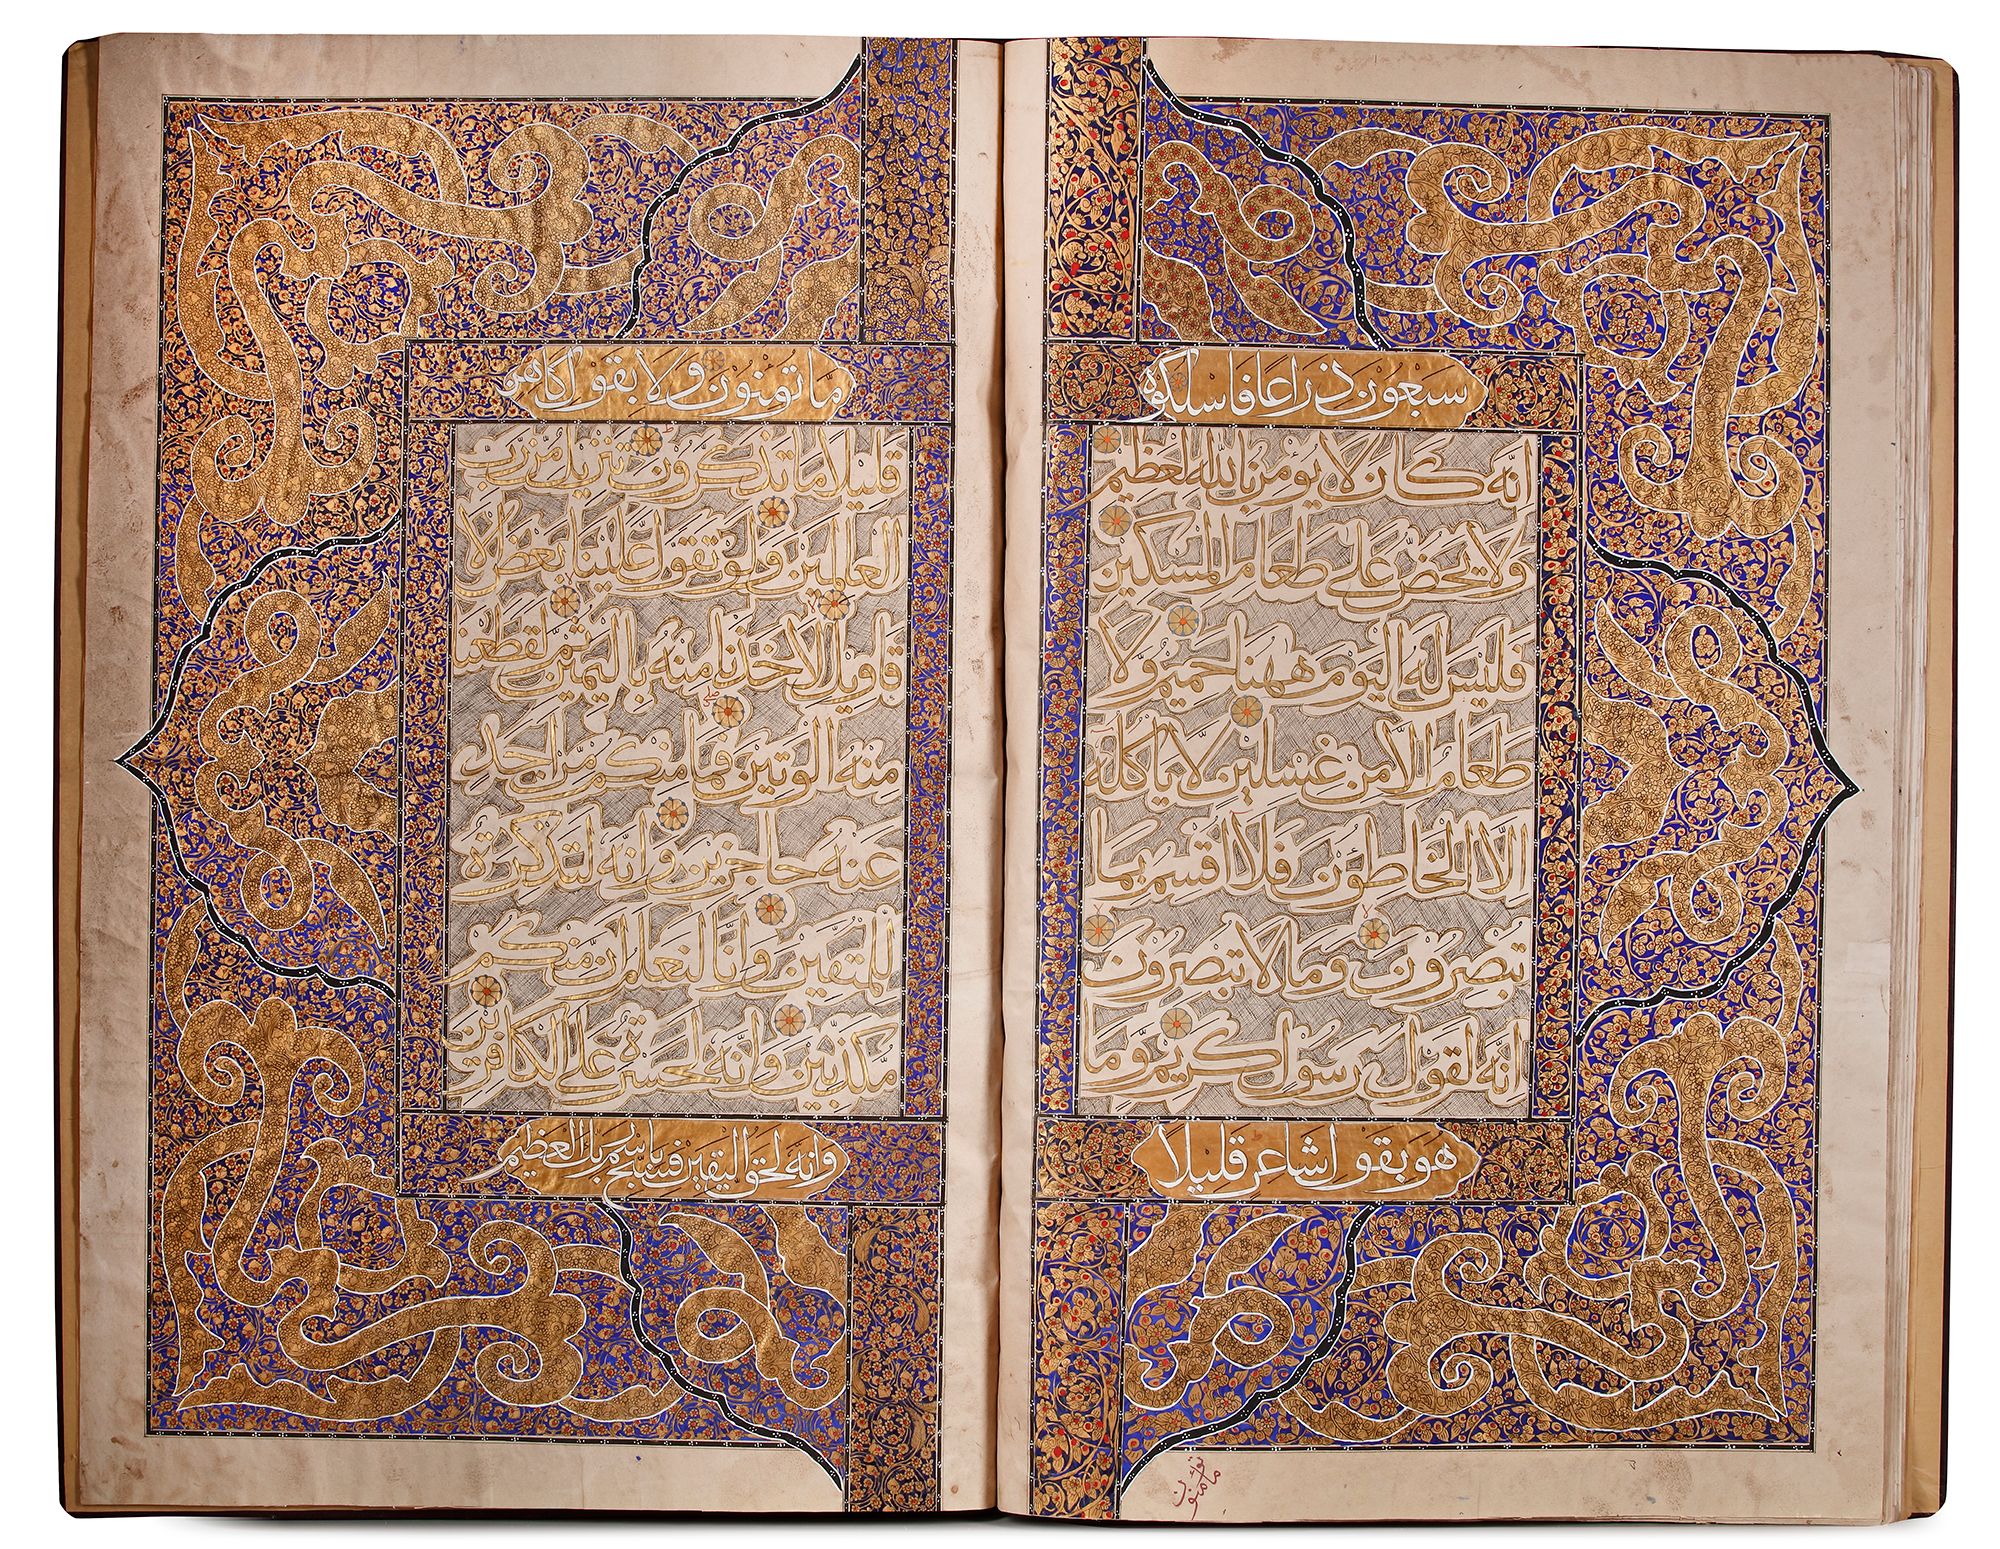 سبعون ذراعًا فاسلكوه
انه كان لا يؤمن بالله العظيم
ولا يحض على طعام المسكين
فليس له اليوم ههنا حميم ولا
طعام الا من غسلين لا ياكله
الا الخاطؤن فلا اقسم بما
تبصرون وما لا تبصرون
انه لقول رسول كريم وما
هو بقول شاعر قليلا
ما تؤمنون
ما تؤمنون ولا بقول كاهن
قليلا ما تذكرون تنزيل من رب
العالمين ولو تقول علينا بعض الا
قاويل لاخذنا منه باليمين ثم لقطعنا
منه الوتين فما منكم من احد
عنه حاجزين وانه لتذكرة
للمتقين وانا لنعلم ان منكم
مكذبين وانه لحسرة على الكافرين
وانه لحق اليقين فسبح باسم ربك العظيم